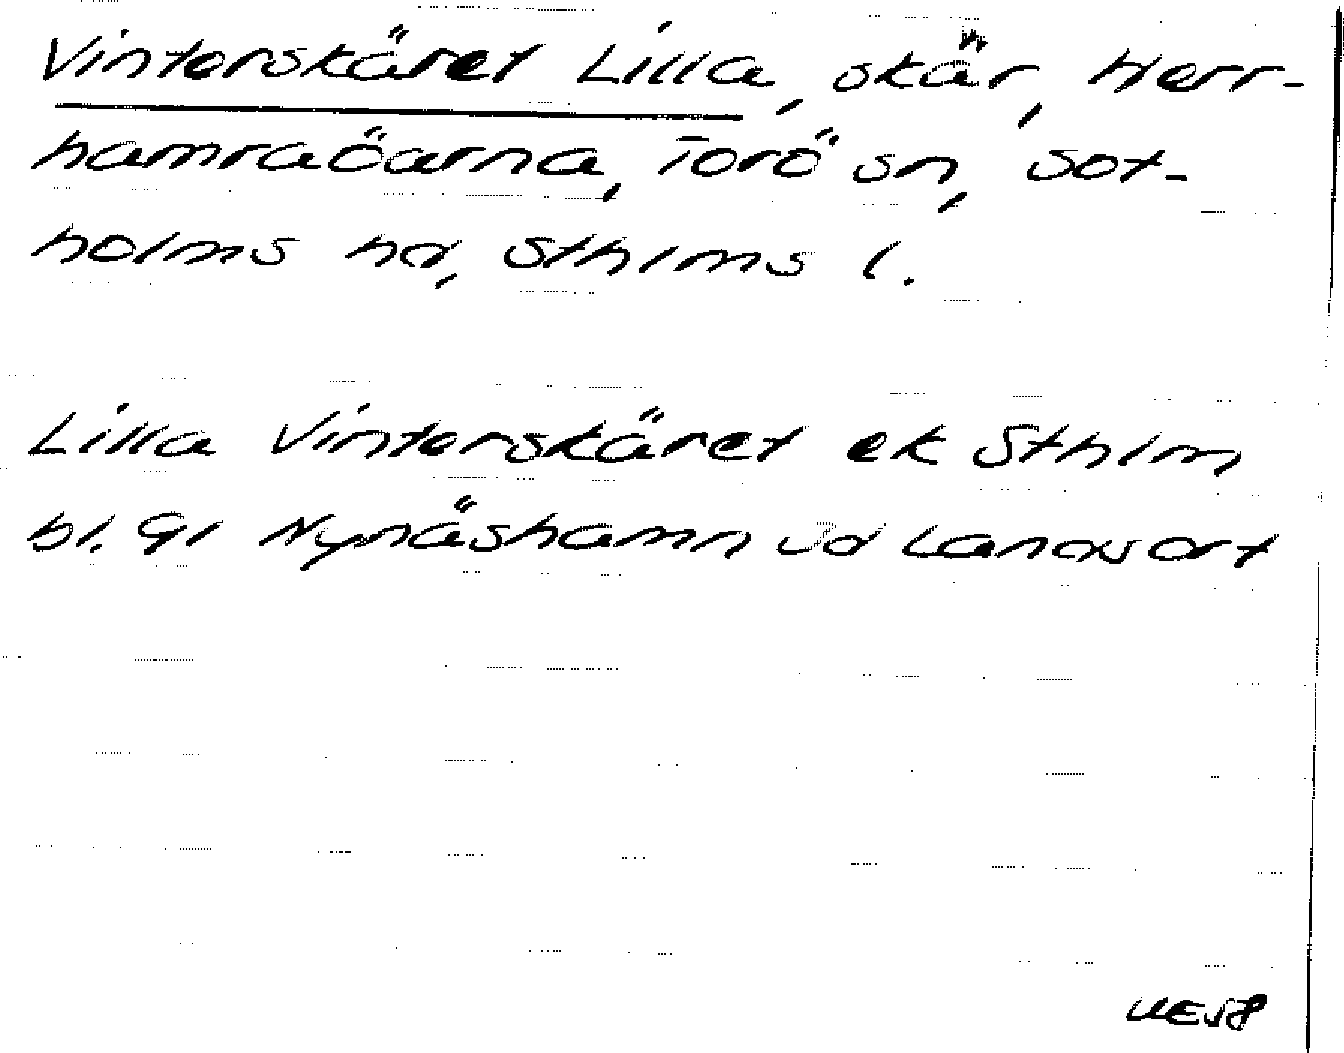 Vinterskäret Lilla, skär, Herr-
hamraöarna, Torö sn, Sot-
holms hd, Sthlms l.
Lilla Vinterskäret ek Sthlm
bl. 91 Nynäshamn Landsort